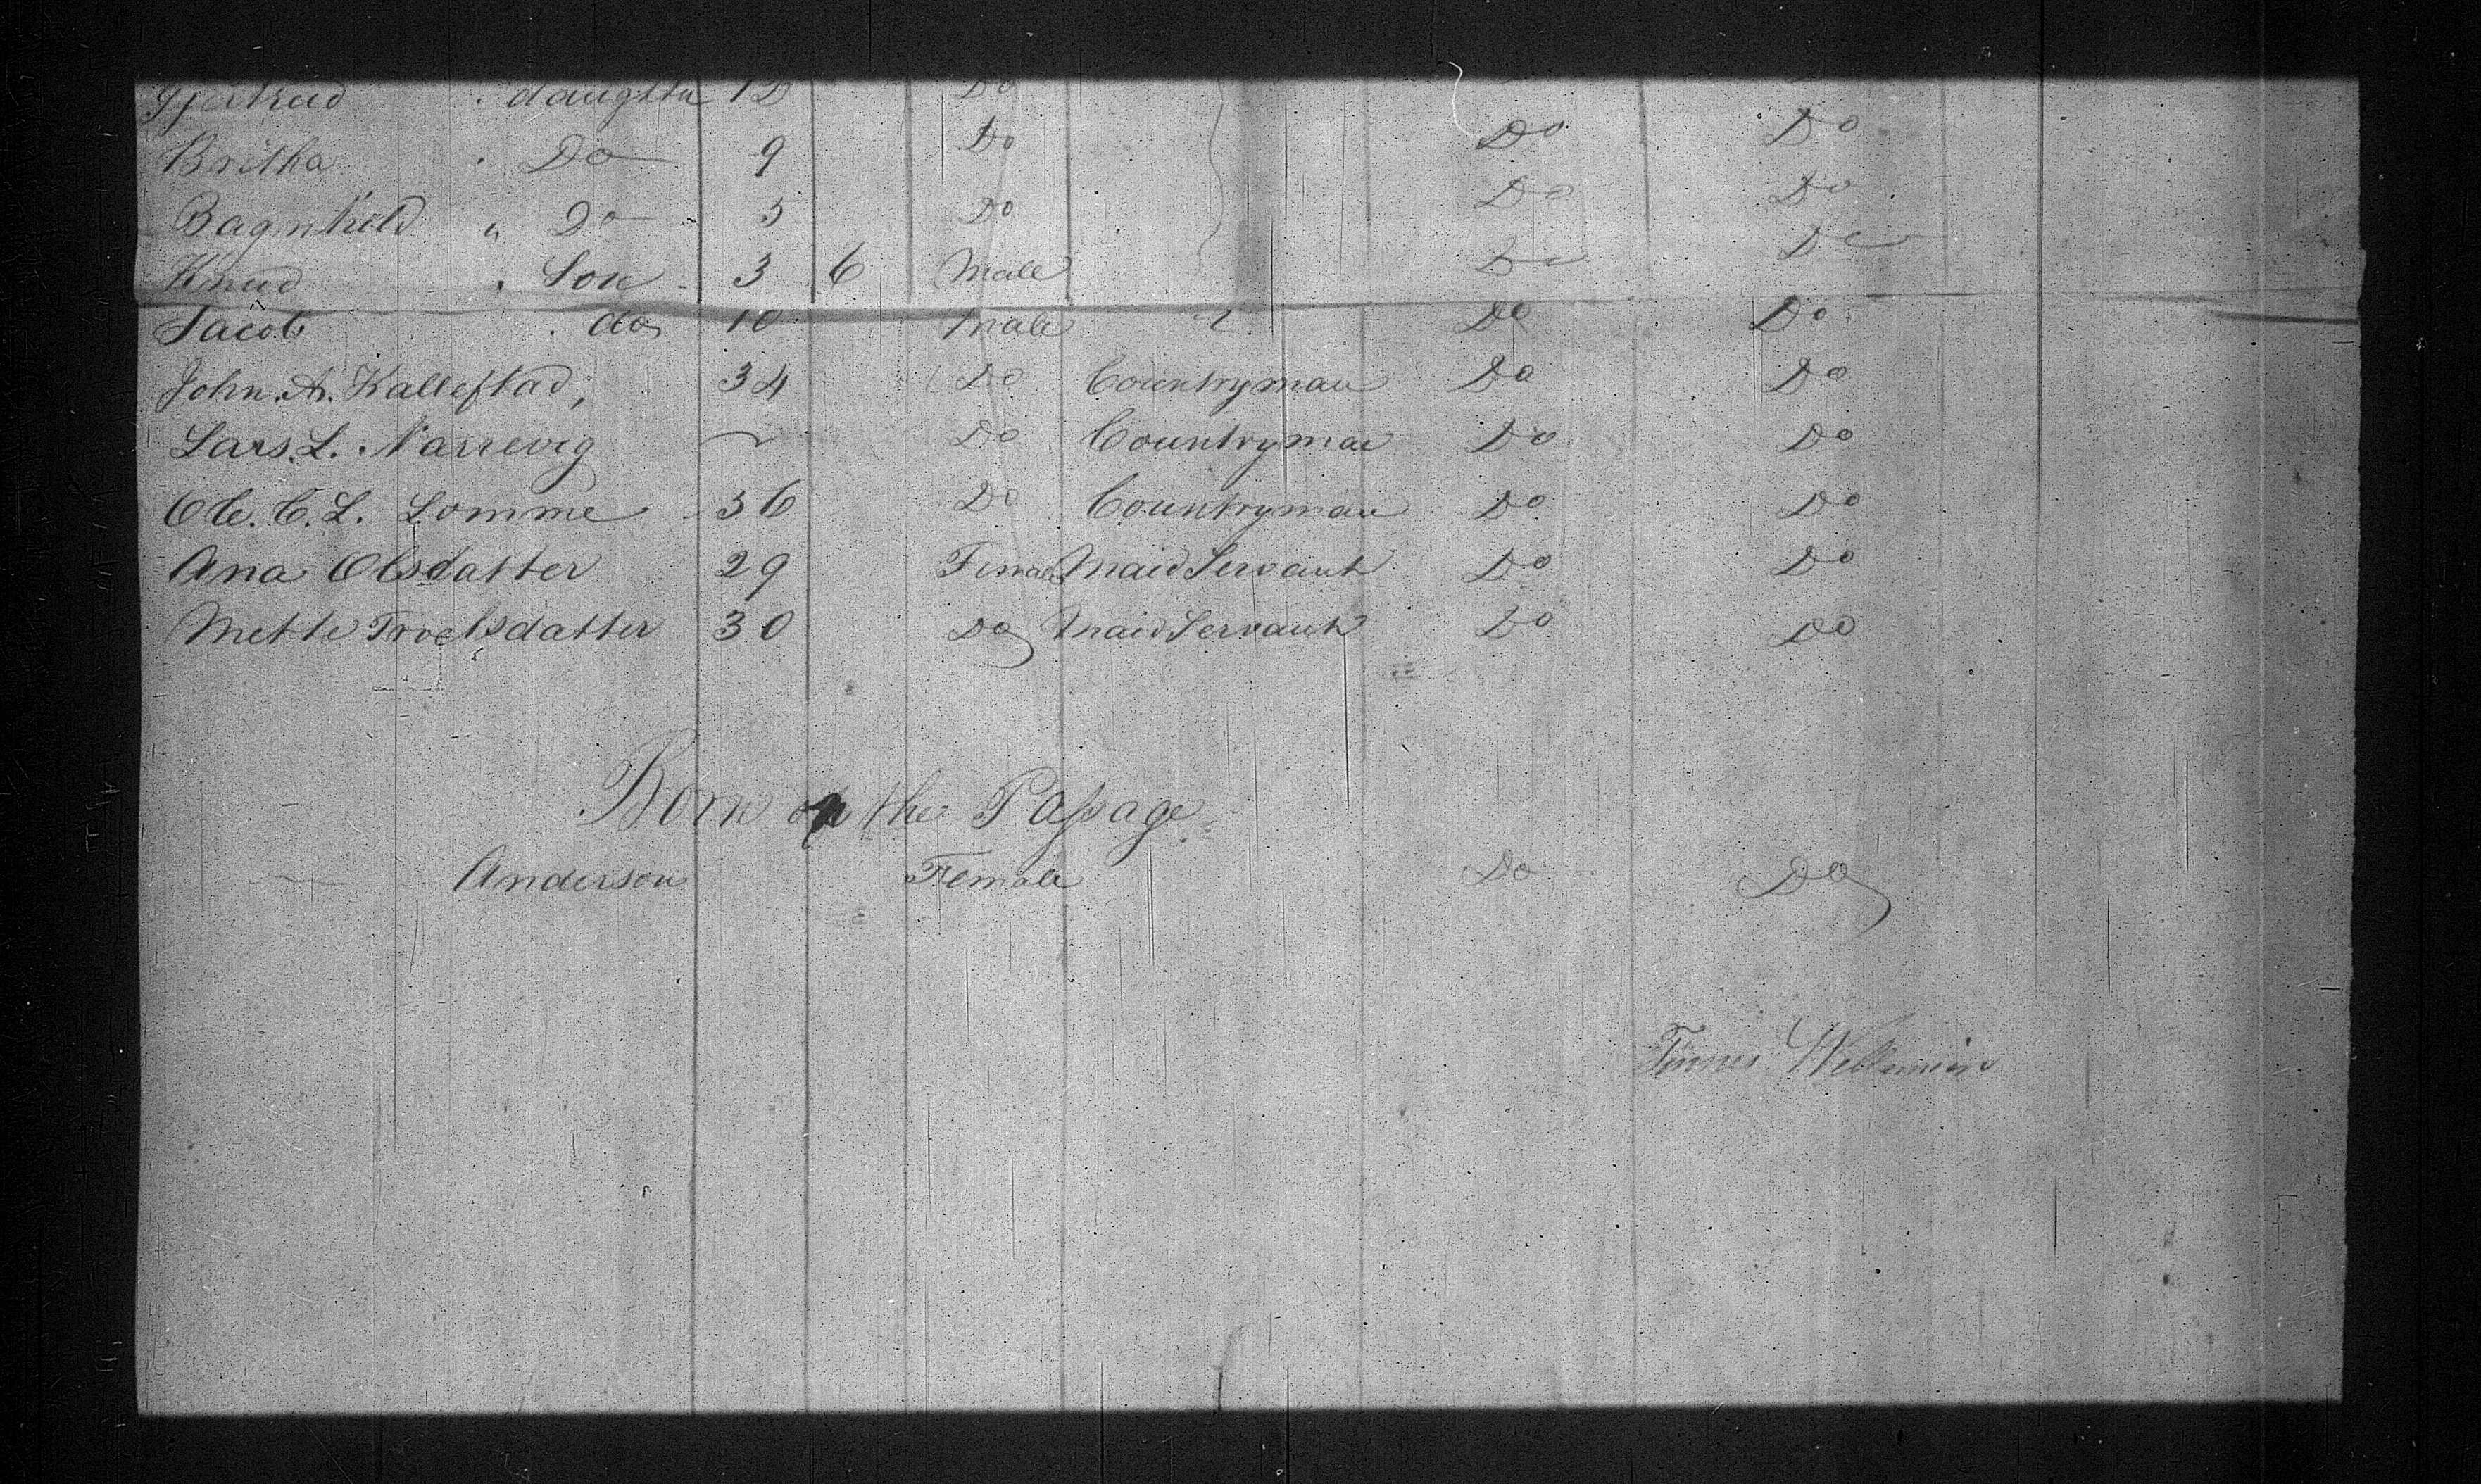 Gjertrud " daughter 12 Do
Britha " Do 9 Do Do Do
Bagnhild " Do 5 Do Do Do
Knud " Son 3 6 Male Do Do
Jacob " do 10 Male " Do Do
John. A. Kallestad, 34 Do Countryman Do Do
Lars. L. Narrevig — Do Countryman Do Do
Ole. C. L. Lomme 36 Do Countryman Do Do
Ana Olsdatter 29 Female Maid Servant Do Do
Mette Troelsdatter 30 Do Maid Servant Do Do
Born on the Passage
— Anderson Female Do Do